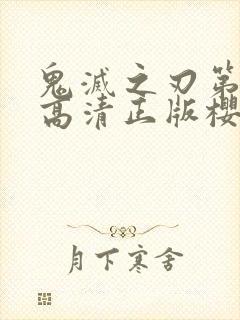 鬼滅之刃第
高清正版樱
月下寒舍